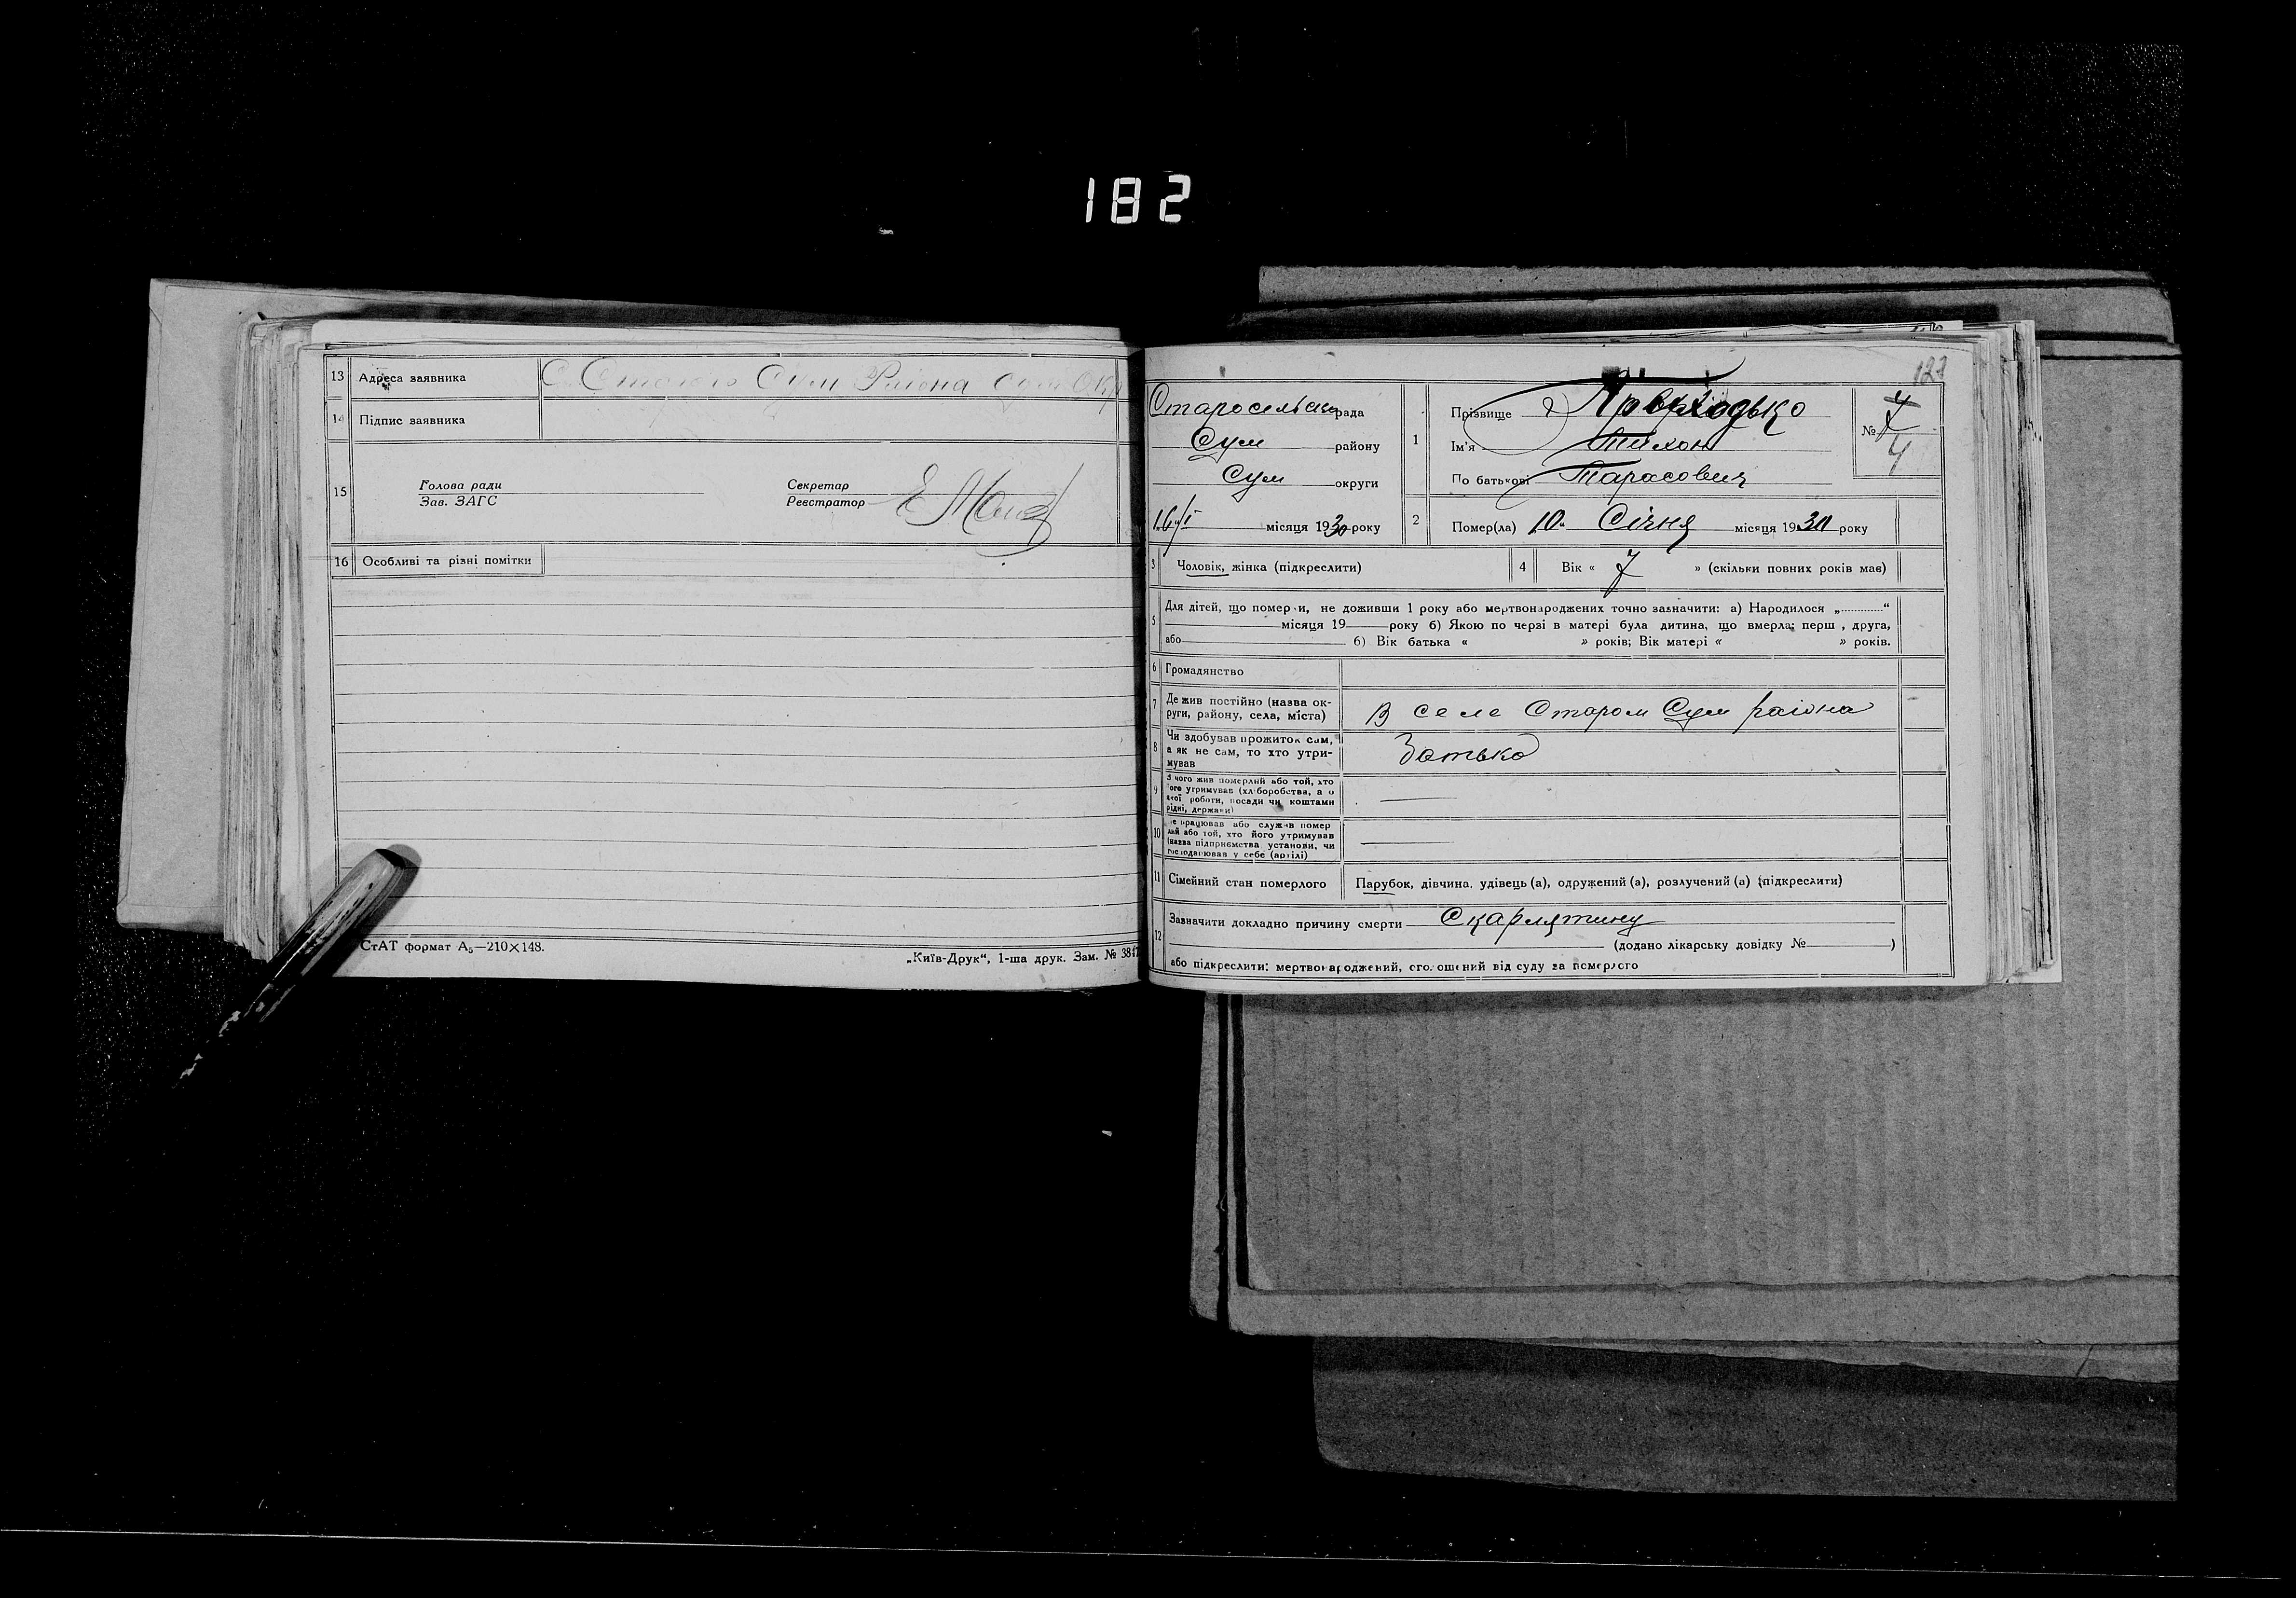 182
13 Адреса заявника С. Старого Сум Раіона Сум Окр
14 Підпис заявника
15 Голова ради
Зав. ЗАГС
Секретар
Реєстратор
16 Особливі та різні помітки
СтАТ формат А₅—210×148.
„Київ-Друк“, 1-ша друк. Зам. №
Старосельска рада
Сум району
Сум округи
16/I місяця 1930 року
1 Прізвище Приходько
Ім'я Тихон
По батькові Тарасович
№ 7
4
2 Помер(ла) 10 Січня місяця 1930 року
3 Чоловік, жінка (підкреслити)
4 Вік « 7 » (скільки повних років мав)
5 Для дітей, що померли, не доживши 1 року або мертвонароджених точно зазначити: а) Народилося „............“
місяця 19 року б) Якою по черзі в матері була дитина, що вмерла: перш , друга,
або б) Вік батька « » років; Вік матері « » років.
6 Громадянство
7 Де жив постійно (назва ок-
руги, району, села, міста) В селе Старом Сум раіона
8 Чи здобував прожиток сам,
а як не сам, то хто утри-
мував Батько
9 З чого жив померлий або той, хто
його утримував (хліборобства, а о
якої роботи, посади чи коштами
рідні, держави)
10 Де працював або служив помер
лий або той, хто його утримував
(назва підприємства, установи, чи
господарював у себе (артілі)
11 Сімейний стан померлого Парубок, дівчина, удівець (а), одружений (а), розлучений (а) (підкреслити)
12 Зазначити докладно причину смерти Скарлятину
(додано лікарську довідку № )
або підкреслити: мертвонароджений, оголошений від суду за померлого